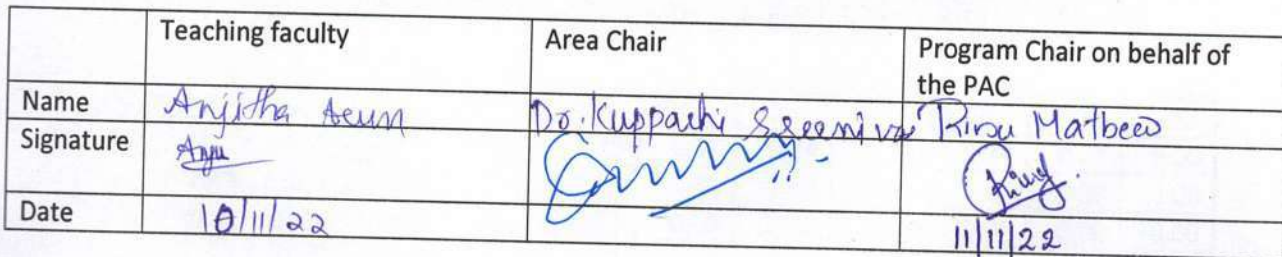 Teaching faculty Area Chair Program Chair on behalf of
the PAC
Name Anjitha Dr. Kuppachi Rinu Mathew
Signature Anju
Date 10/11/22 11/11/22